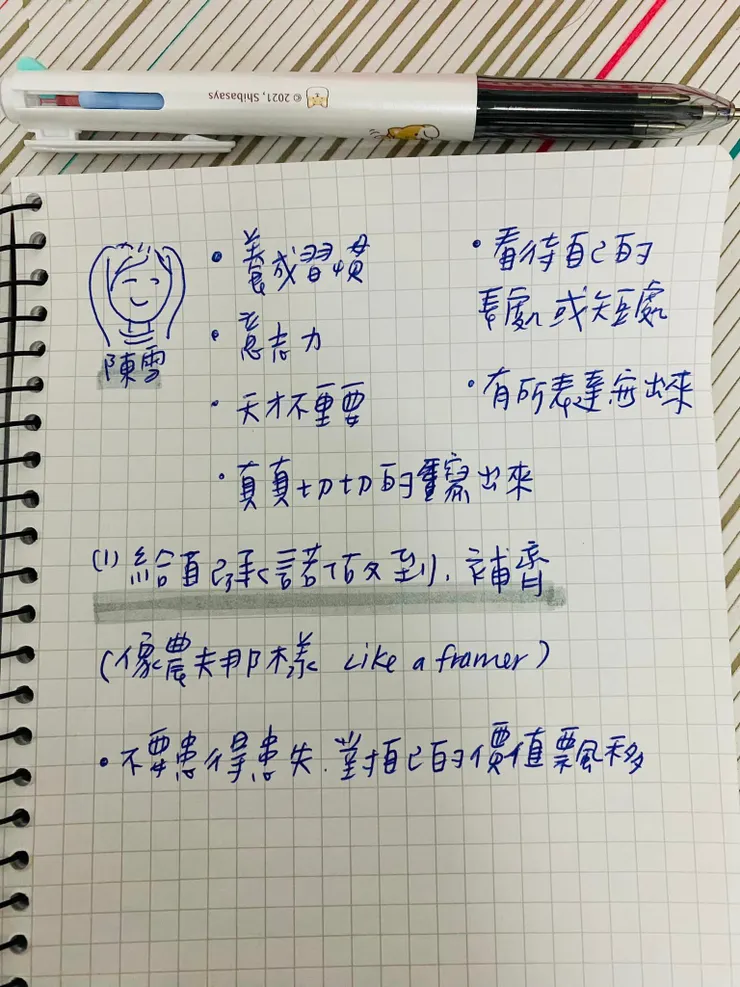 © 2021, Shibasays
陳雪
• 養成習慣
• 意志力
• 天才不重要
• 真真切切的寫出來
• 看待自己的
長處或短處
• 有所表達無出來
(1) 給自己承諾做到、補齊
(像農夫那樣 Like a framer)
• 不要患得患失、對自己的價值飄移